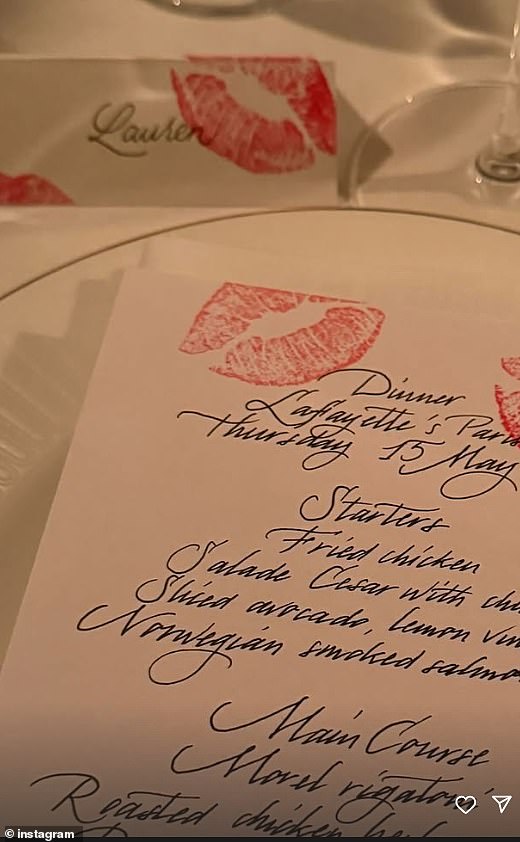 Lauren
Dinner
Lafayette's Paris
Thursday 15 May
Starters
Fried chicken
Salade Cesar with
Sliced avocado, lemon
Norwegian smoked
Main Course
Morel
Roasted chicken
instagram